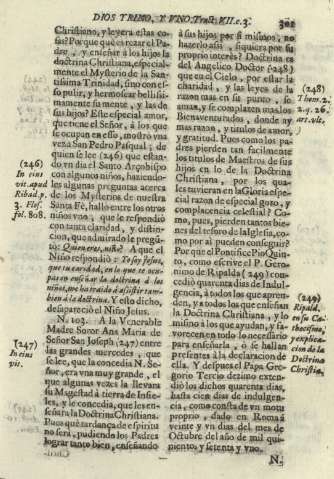 DIOS TRINO, Y VNO, Tract. VII. c. 3. 301
Christiano, y leyera estas co-
sas? Porque què es rezar el Pa-
dre, y enseñar à los hijos la
doctrina Christiana, especial-
mente el Mysterio de la San-
tissima Trinidad, sino con es-
so pulir, y hermosear bellissi-
mamente su mente, y las de
sus hijos? Este especial amor,
que tiene el Señor, à los que
se ocupan en esso, mostrò vna
vez à San Pedro Pasqual; de
quien se lee (246) que estan-
do vn dia el Santo Arçobispo
con algunos niños, haziendo-
les algunas preguntas acerca
de los Mysterios de nuestra
Santa Fè, hallò entre los otros
niños vno, que le respondiò
con tanta claridad, y distin-
cion, que admirado le pregũ-
tò: Quien eres, niño? A que el
Niño respondiò: Yo soy Jesus,
que tu caridad, en lo que te ocu-
pas en enseñar la doctrina à los
niños, me ha traido à assistir tam-
bien à la doctrina. Y esto dicho,
desapareciò el Niño Jesus.
N. 103. A la Venerable
Madre Soror Ana Maria de
Señor San Joseph (247) entre
las grandes mercedes, que
se lee, que la concediò N. Se-
ñor, era vna muy grande, el
que algunas vezes la llevara
su Magestad à tierra de Infie-
les, y le concedia, que les en-
señara la Doctrina Christiana.
Pues què tardança de espiritu
no serà, pudiendo los Padres
lograr tanto bien, enseñando
(246)
In eius
vit. apud
Ribad. y
3. Flos.
fol. 808.
(247)
In eius
vit.
à sus hijos por si mismos, no
hazerlo assi, siquiera por su
proprio interès? Doctrina es
del Angelico Doctor (248)
que en el Cielo, por estar la
charidad, y las leyes de la
razon mas en su punto, se
aman, y se complazen mas los
Bienaventurados, donde ay
mas razon, y titulos de amor,
y gratitud. Pues como los pa-
dres pierden tan facilmente
los titulos de Maestros de sus
hijos en lo de la Doctrina
Christiana, por los qua-
les tuvieran en la Gloria espe-
cial razon de especial gozo, y
complacencia celestial? Co-
mo, pues, pierden tantos bie-
nes del tesoro de la Iglesia, co-
mo por aì pueden conseguir?
Por que el Pontifice Pio Quin-
to, como escrive el P. Gero-
nimo de Ripalda (249) con-
cediò quarenta dias de Indul-
gencia, à todos los que apren-
den, y à todos los que enseñan
la Doctrina Christiana, y lo
mismo à los que ayudan, y fa-
vorecen en todo lo necessario
para enseñarla, ò se hallan
presentes à la declaracion de
ella. Y despues el Papa Gre-
gorio Tercio dezimo exten-
diò los dichos quarenta dias,
hasta cien dias de indulgen-
cia, como consta de vn motu
proprio, dado en Roma à
veinte y vn dias del mes de
Octubre del año de mil qui-
niento, y setenta y vno.
N.
(248)
Thom. 2.
2. q. 26.
art. vlt.
(249)
Ripald.
en su Ca-
thecismo,
y explica-
cion de la
Doctrina
Christia.